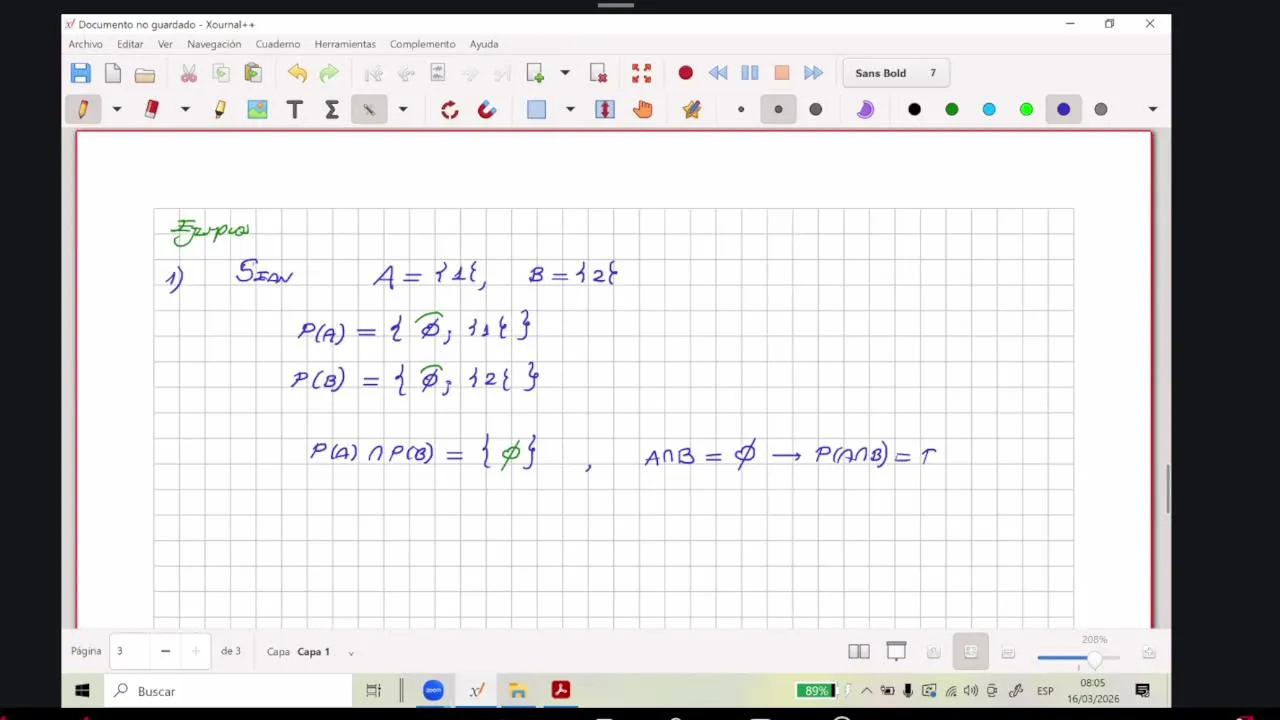 Documento no guardado - Xournal++
Archivo Editar Ver Navegación Cuaderno Herramientas Complemento Ayuda
Sans Bold 7
1) SEAN A = {1}, B = {2}
P(A) = { ϕ; {1} }
P(B) = { ϕ; {2} }
P(A) ∩ P(B) = { ϕ } , A∩B = ϕ → P(A∩B) =
Página 3 de 3 Capa Capa 1 208%
Buscar
zoom
89% ESP 08:05
16/03/2026